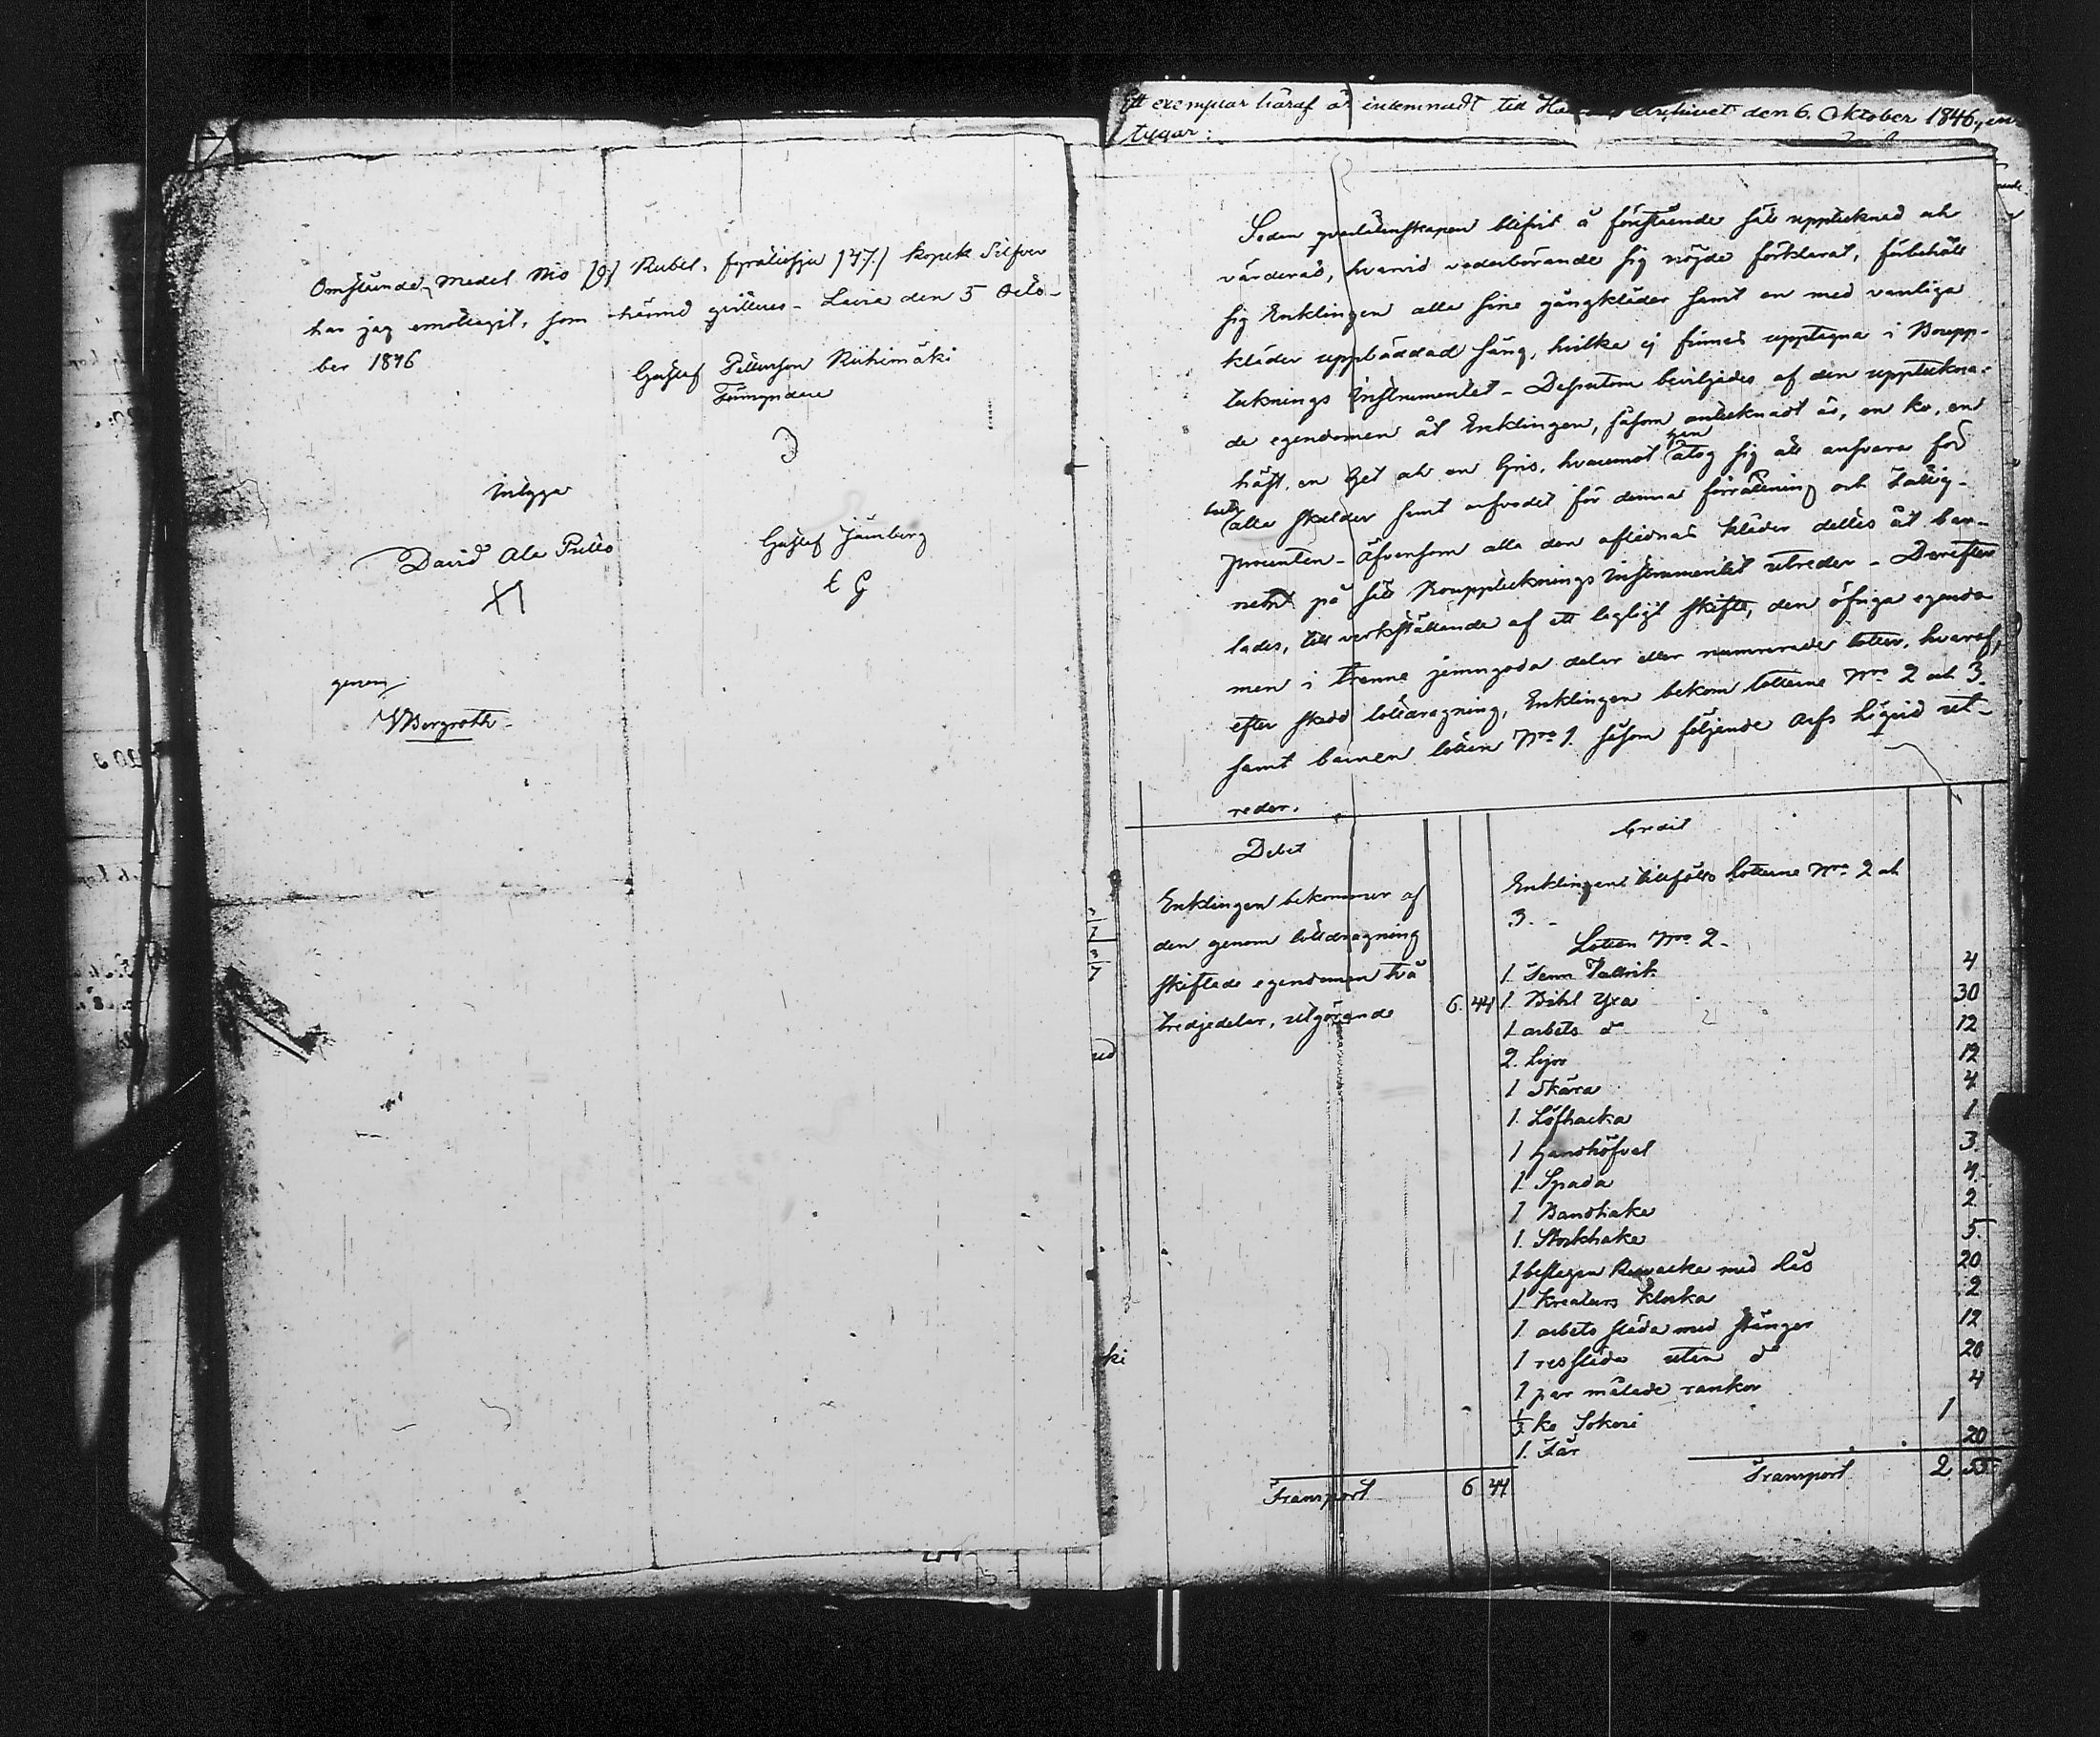 Omstående Medel Nio /9/ Rubel, fyratiosju /47./ Kopek Silfver
har jag emottagit, som härmed qvitteras - Lavia den 5 Octo-
ber 1846
Gustaf Pettersson Riihimäki
Förmyndare
Intyga
David Ala
Gustaf Jernberg
t G
genom
Bergroth
Ett exemplar häraf är inlemnadt till archivet den 6. Oktober 1846,
tygar:
Sedan qvarlåtenskapen blifvit å förestående sätt upptecknad och
värderad, hvarvid vederbörande sig nöjde förklarat, förbehöll
sig Enklingen alla sina gångkläder samt en med vanliga
kläder uppbäddad säng, hvilka ej finnas upptagna i Boupp-
tecknings Instrumentet - Dessutom beviljades af den uppteckna-
de egendomen åt Enklingen, såsom antecknadt är, en ko, en
häst, en Get och en Gris, hvaremot han åtog sig att ansvara för
alla skulder samt arfvodet för denna förrättning och Fattig-
procenten - Äfvensom alla den aflidnas kläder deltes åt bar-
nen på sätt Bouppteckningsinstrumentet utreder - Derefter
lades, till verkställande af ett lagligt skifte, den öfriga egendo
men i trenne jemngoda delar eller numrerade lotter, hvaraf,
efter skedd lottdragning, Enklingen bekom lotterne Nro 2 och 3.
samt barnen lotten Nro 1. såsom följande Arfs Liqvid ut-
reder.
Debet
Enklingen bekommer af
den genom lottdragning
skiftade egendomen två
tredjedelar, utgörande 6. 44
Transport 6 44
Credit
Enklingens tillfallo Lotterne Nro 2 och
3. -
Lotten Nro 2.
1. Tenn Tallrik 4
1. Bihl Yxa 30
1 arbets do 12
2. Lijor 12
1 Skära 4
1. Löfhacka 1
1 Handhöfvel 3.
1. Spada 4.
1 Bandhake 2
1. Stockhake 5.
1 beslagen med lås 20
1 Kreaturs Klocka 2
1. arbets släda med stänger 12
1 ressläda utan do 20
1 par målade rankor 4
1/3 ko Sokeri 1
1. Får 20
Transport 2 55